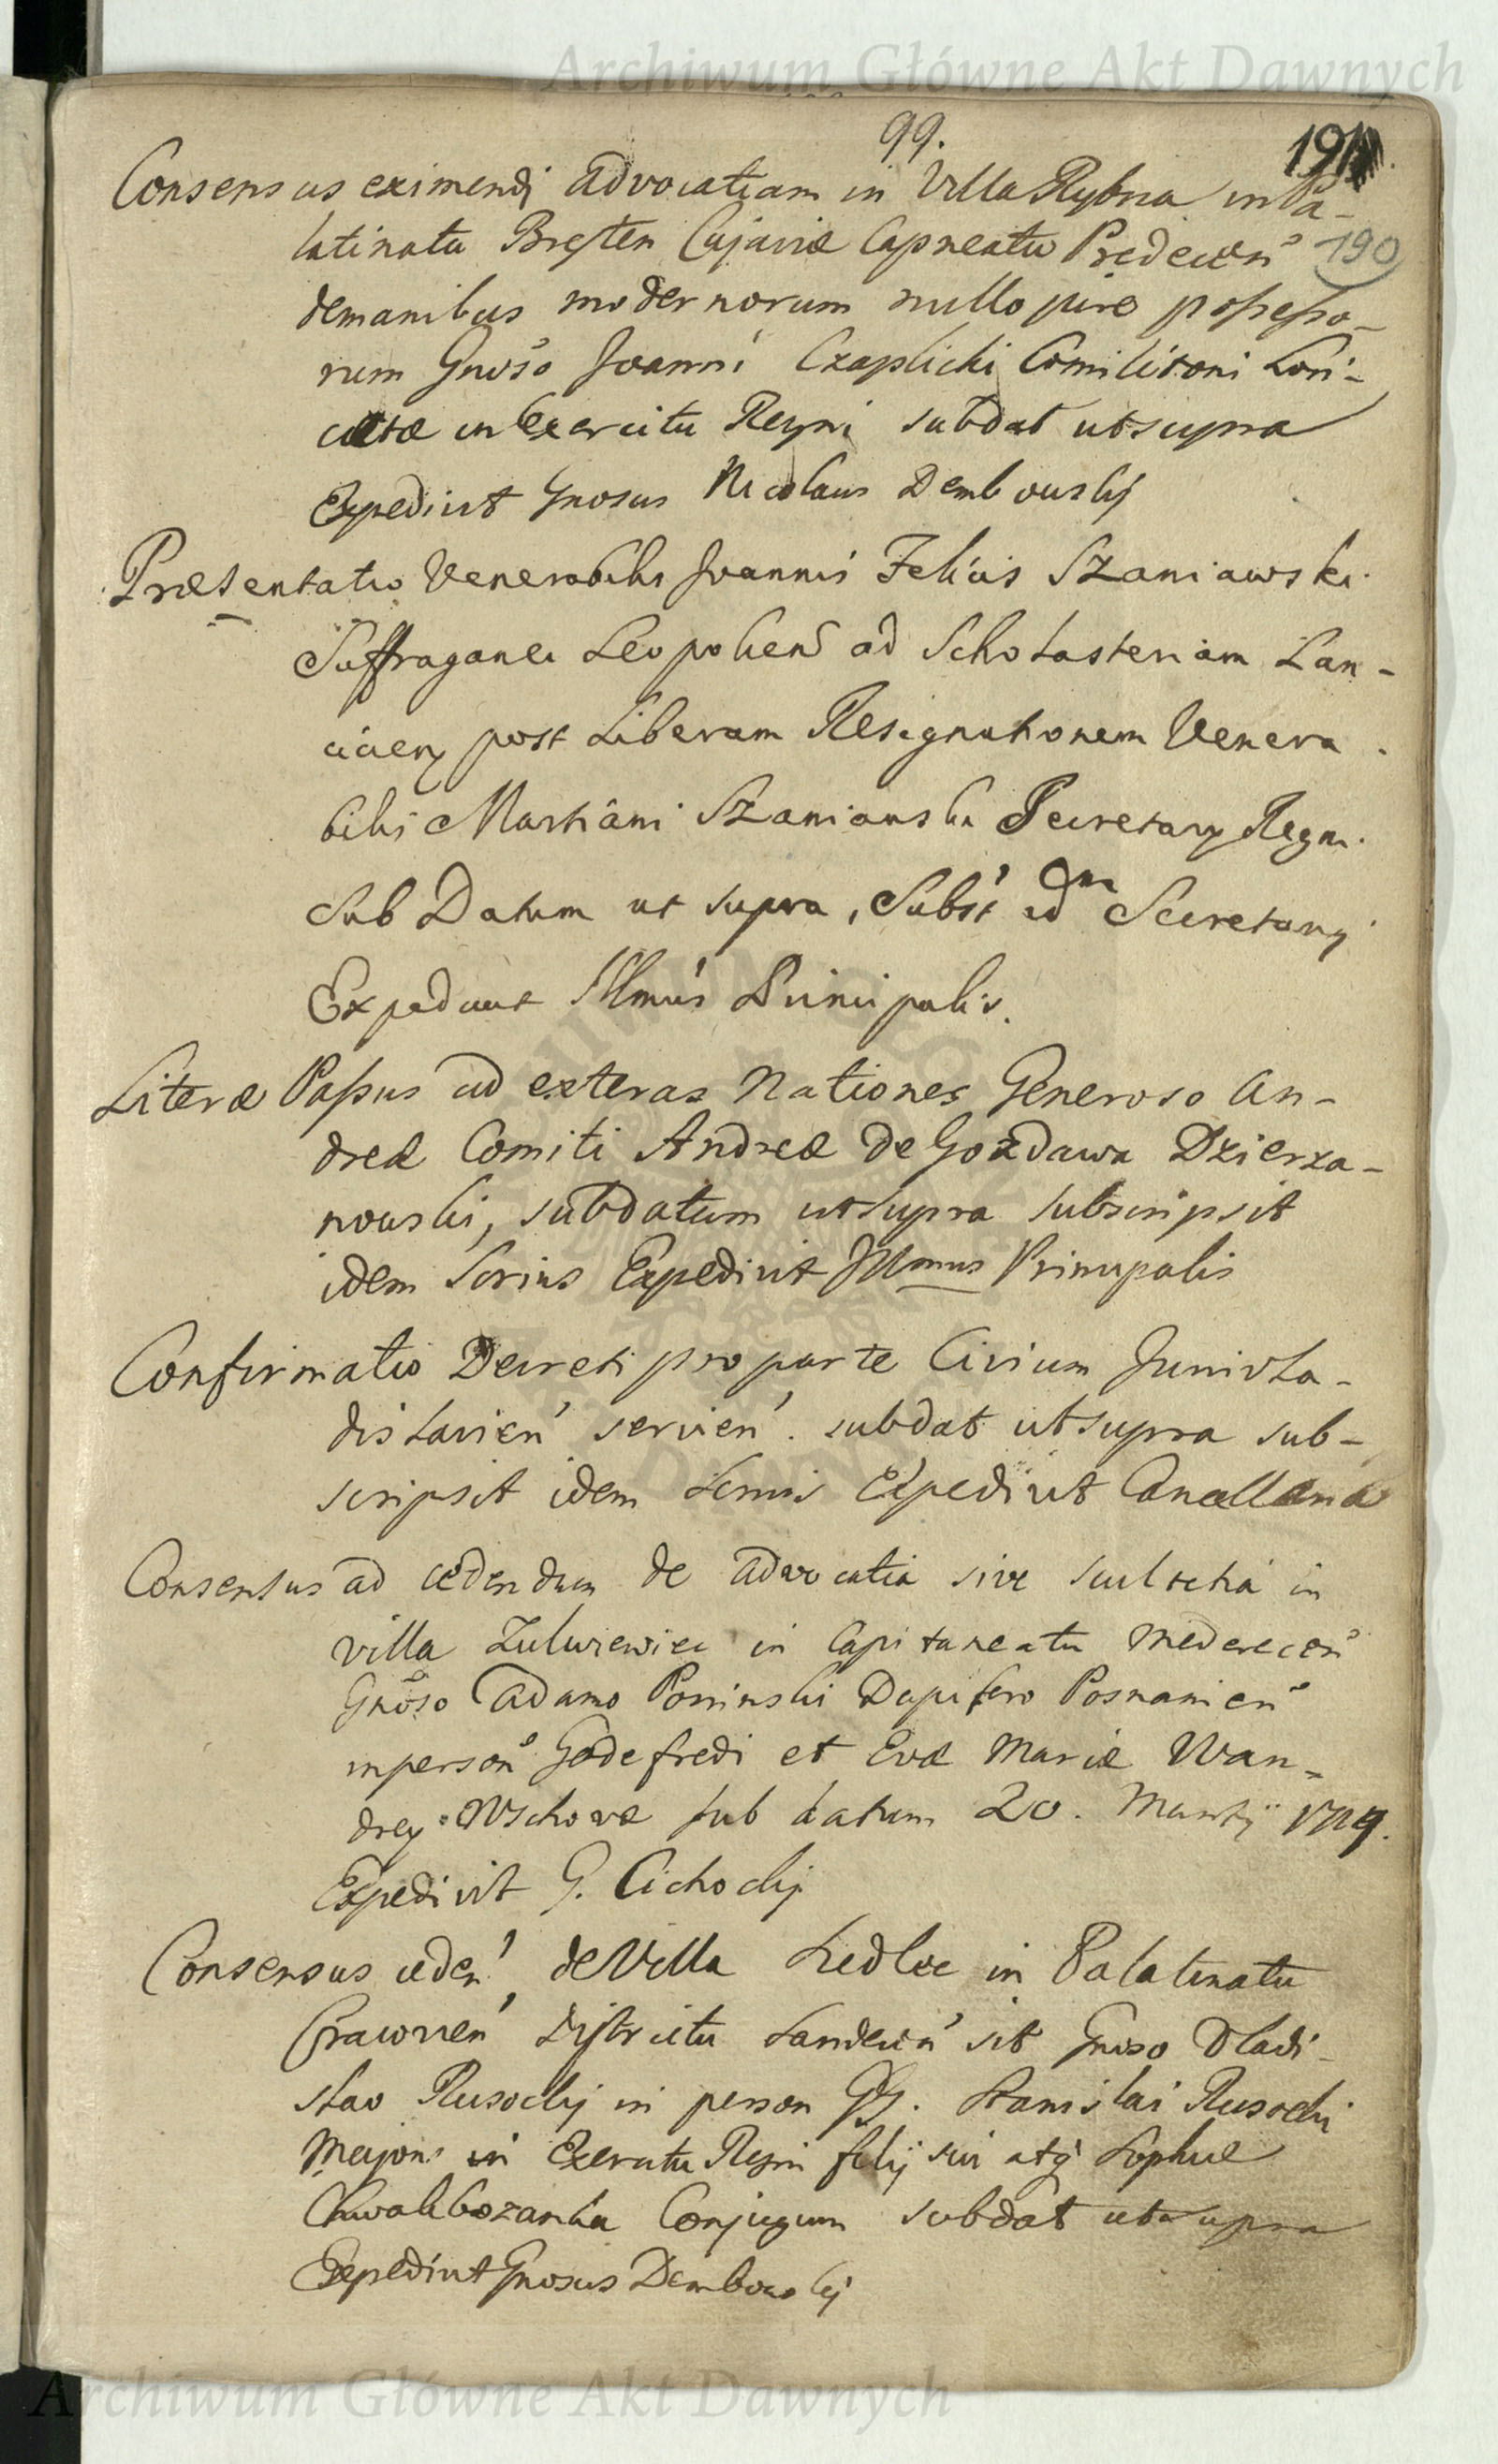 Archiwum Główne Akt Dawnych
99.
191
190
Consensus eximendi advocatiam in Villa Rybna in Pa-
latinatu Bresten Cujaviæ Capneatu Predecen
demanibus modernorum nullo jure possesso-
rum Gnoso Joanni Czaplicki Comilitoni Lori-
catæ in Exercitu Regni subdat utsupra
Expedivit Gnosus Nicolaus Dembouskij
Præsentatio Venerabilis Joannis Felicis Szaniawski
Suffraganei Leopolien ad Scholasteriam Lan-
cicien post Liberam Resignationem Venera
bilis Martiani Szaniawski Secretary Regni
Sub Datum ut supra, Subst Secretary
Expedivit Illmus Principalis.
Literæ Passus ad exteras Nationes Generoso An-
dreæ Comiti Andreæ de Gozdawa Dzierza-
nouski, subdatum utsupra subscripsit
idem Serius Expedivit Illmus Principalis
Confirmatio Decreti pro parte Civium Junivla-
dislavien servien. subdat utsupra sub-
scripsit idem Sermus Expedivit Cancellaria
Consensus ad cedendum de advocatia sive scultetia in
villa in Capitaneatu Mederecen
Gnoso Adamo Poninski Dapifero Posnanien
inperson Godefredi et Evæ Mariæ Wan-
drey Wschovæ sub datum 20. Martij 1719.
Expedivit G. Cichockij
Consensus ceden de Villa Siedlce in Palatinatu
Cracovien Districtu Sandecen sit Gnoso Vladi-
slao Rusockij in person GG. Stanislai Rusocki
Majoris in Exercitu Regni filij sui atq Sophiæ
Chwalibozanka Conjugum subdat utsupra
Expedivit Gnosus Dembouskij
Archiwum Główne Akt Dawnych